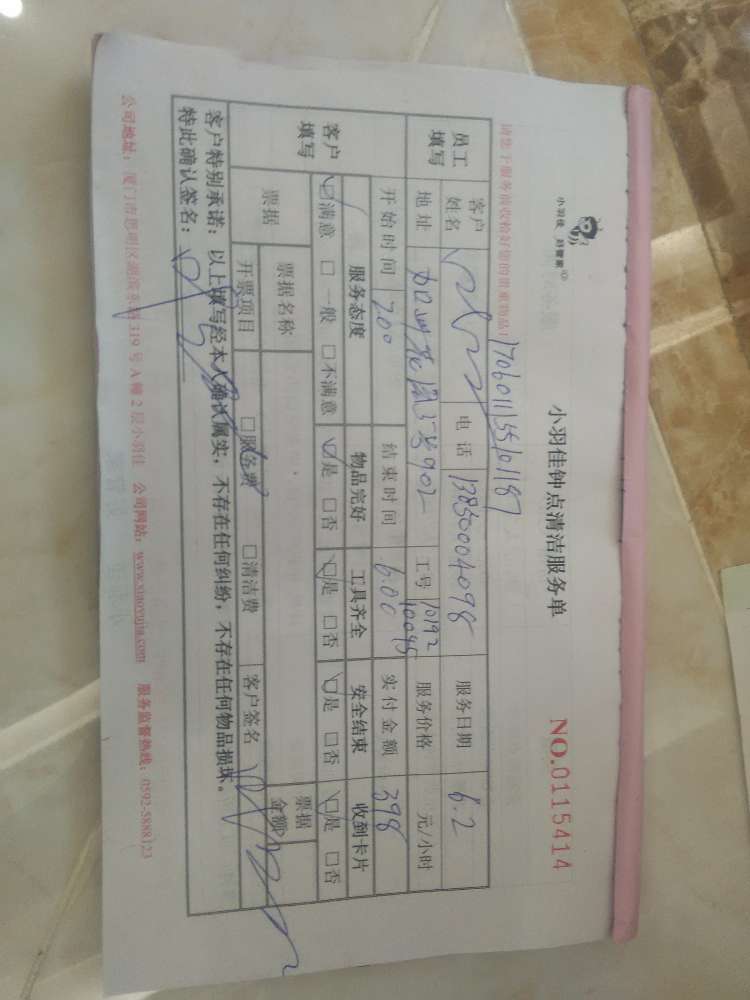 小羽佳 好管家
小羽佳钟点清洁服务单
NO.0115414
请您于服务前收检好您的贵重物品!
170601155101187
员工填写
客户姓名 电话 13850004098 服务日期 6.2
地址 5号902 工号 10192 10045 服务价格 元/小时
开始时间 200 结束时间 6:00 实付金额 398
客户填写
服务态度 物品完好 工具齐全 安全结束 收到卡片
☑满意 □一般 □不满意 ☑是 □否 ☑是 □否 ☑是 □否 ☑是 □否
票据 票据名称 票据金额
开票项目 □服务费 □清洁费 客户签名
客户特别承诺:以上填写经本人确认属实,不存在任何纠纷,不存在任何物品损坏。
特此确认签名:
公司地址:厦门市思明区湖滨东路319号A幢2层小羽佳 公司网站:www.xiaoyujia.com 服务监督热线:0592-5888123